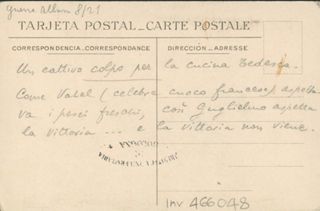 guerra album 8/21
TARJETA POSTAL-CARTE POSTALE
CORRESPONDENCIA-CORRESPONDANCE
DIRECCIÓN-ADRESSE
Un cattivo colpo per la cucina Tedesca.
Come Vatel (celebre cuoco francese) aspetta
va i pesci freschi, così Guglielmo aspetta
la vittoria ... e la vittoria non viene.
BOLOGNA
inv 466048